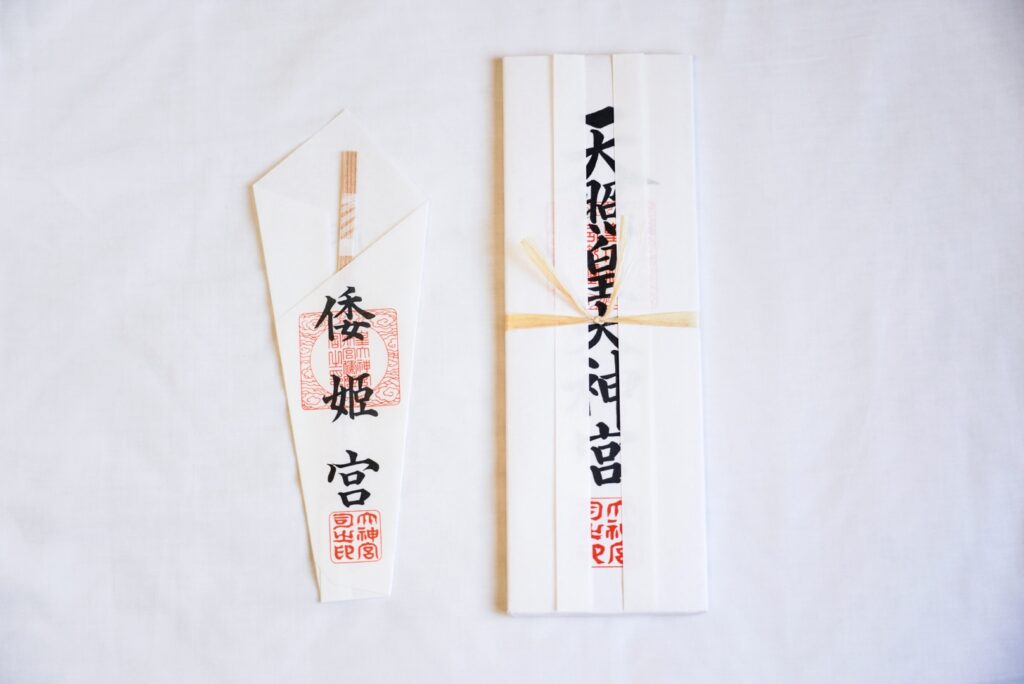 倭姫宮
大神宮
司之印
天照皇大神宮
大神宮
司之印